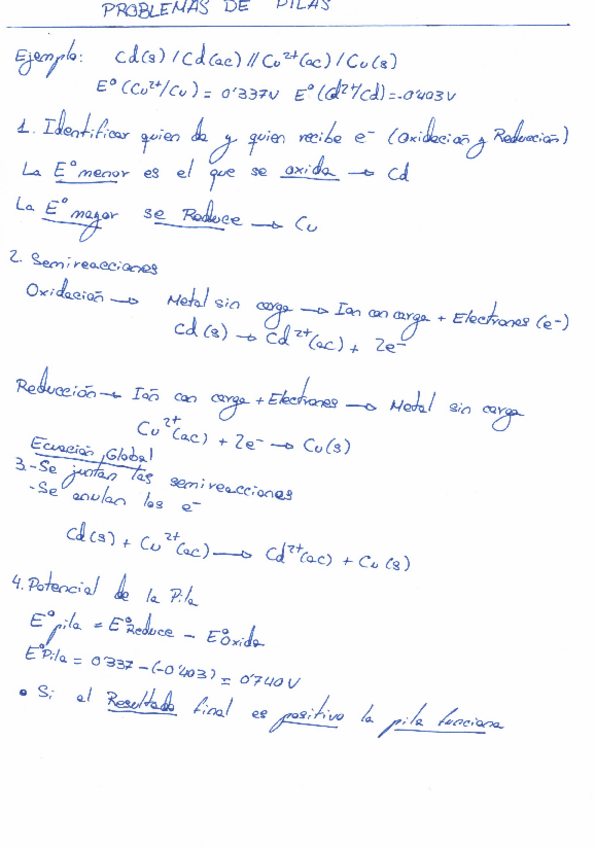 PROBLEMAS DE PILAS
Ejemplo: Cd(s) / Cd(ac) // Cu²⁺(ac) / Cu(s)
E⁰ (Cu²⁺/Cu) = 0'337V E⁰ (d²⁺/Cd) = -0'403V
1. Identificar quien da y quien recibe e⁻ (Oxidación y Reducción)
La E⁰ menor es el que se oxida → Cd
La E⁰ mayor se Reduce → Cu
2. Semireacciones
Oxidación → Metal sin carga → Ion con carga + Electrones (e⁻)
Cd (s) → Cd²⁺(ac) + 2e⁻
Reducción → Ión con carga + Electrones → Metal sin carga
Cu²⁺(ac) + 2e⁻ → Cu(s)
Ecuación Global
3.-Se juntan las semireacciones
-Se anulan los e⁻
Cd(s) + Cu²⁺(ac) → Cd²⁺(ac) + Cu(s)
4. Potencial de la Pila
E⁰pila = E⁰Reduce - E⁰Oxida
E⁰Pila = 0'337 - (-0'403) = 0'740V
• Si el Resultado final es positivo la pila funciona